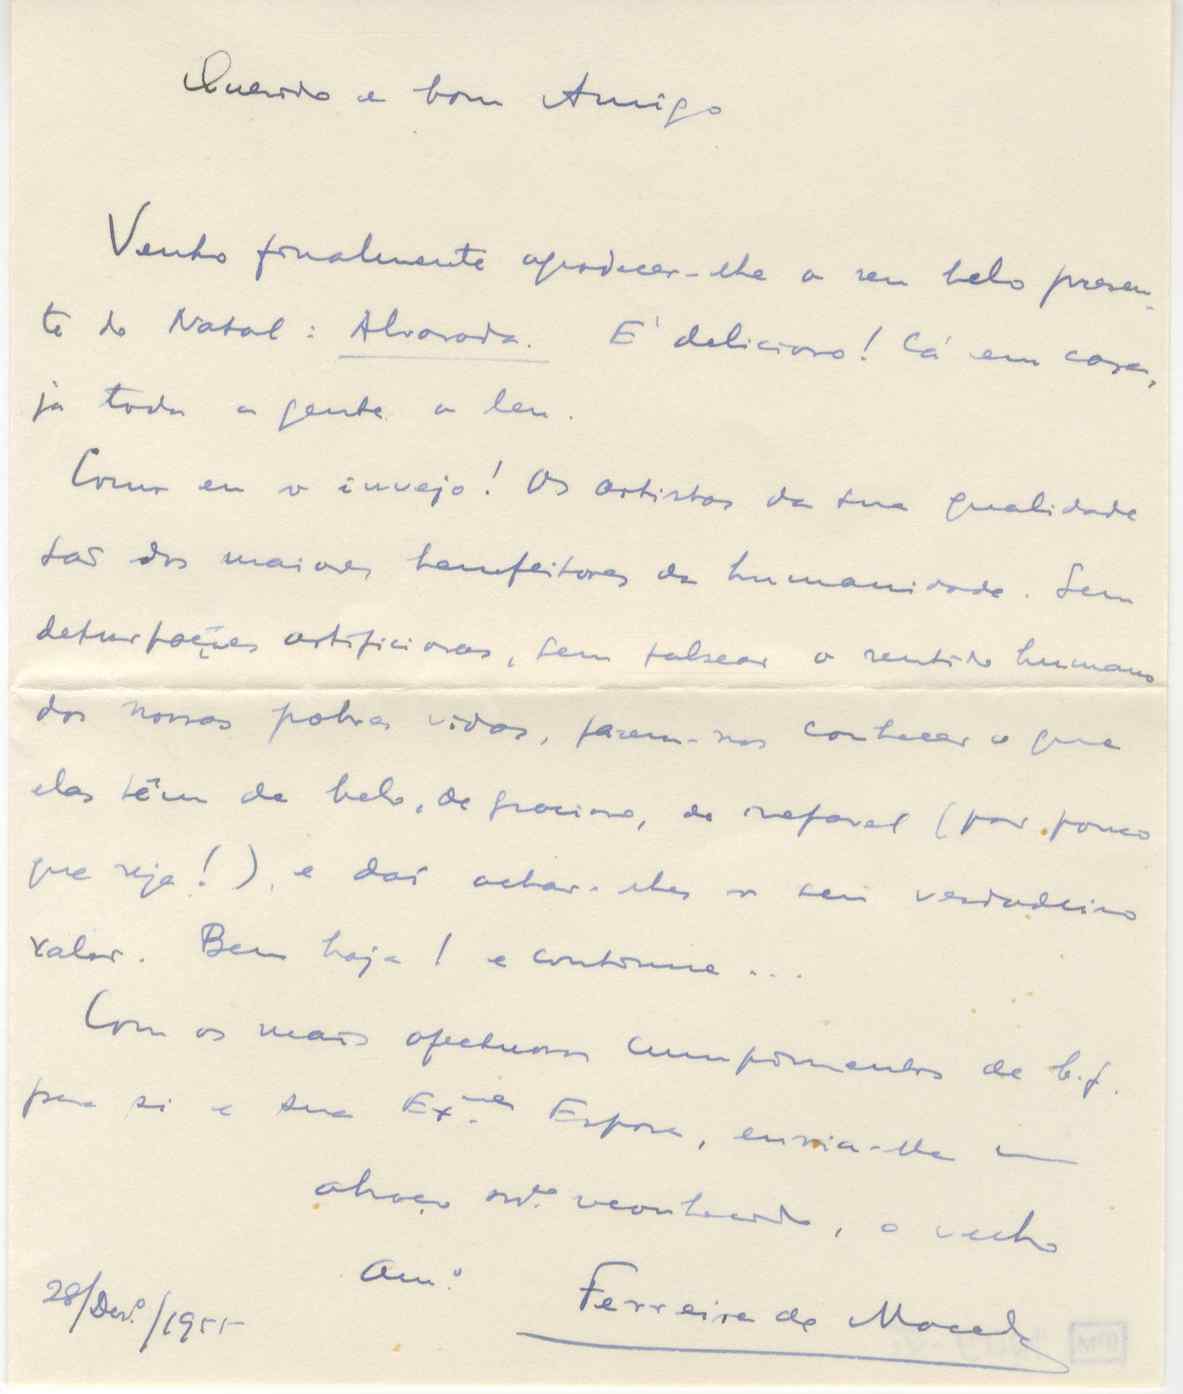 Querido e bom Amigo
Venho finalmente agradecer-lhe o seu belo presen-
te do Natal: Alvorada. É delicioso! Cá em casa,
já toda a gente o leu.
Como eu o invejo! Os artistas da sua qualidade
são dos maiores bemfeitores da humanidade. Sem
deturpações artificiosas, sem falsear o sentido humano
das nossas pobres vidas, fazem-nos conhecer o que
elas têm de belo, de gracioso, de
(por pouco
que seja!), e daí achar-lhes o seu verdadeiro
valor. Bem haja! e continue...
Com os mais afectuosos cumprimentos de b.f.
para si e sua Ex.ma Esposa, envia-lhe um
abraço mt.º reconhecido, o velho
am.º
Ferreira de Macedo
28/Dez.º/1955